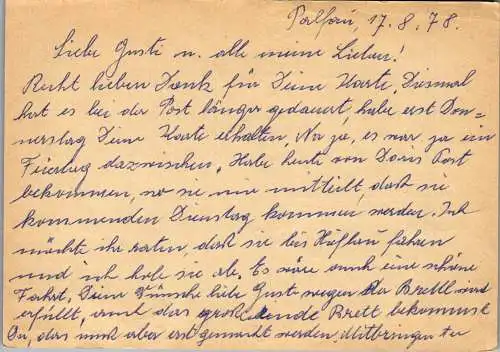 Palfau, 17. 8. 78.
Liebe Gusti u. alle meine Lieben!
Recht lieben Dank für Deine Karte. Diesmal
hat es bei der Post länger gedauert, habe erst Don=
nerstag Deine Karte erhalten, Na ja, es war ja ein
Feiertag dazwischen. Habe heute von Doris Post
bekommen, wo sie mir mitteilt, daß sie
kommenden Dienstag kommen werden. Ich
möchte ihr raten, daß sie bis Hieflau fahren
und ich hole sie ab. Es wäre auch eine schöne
Fahrt. Deine Wünsche liebe Gusti wegen der Brettl sind
erfüllt, auch das große Brett bekommst
Du, das muß aber erst gemacht werden. Mitbringen tu